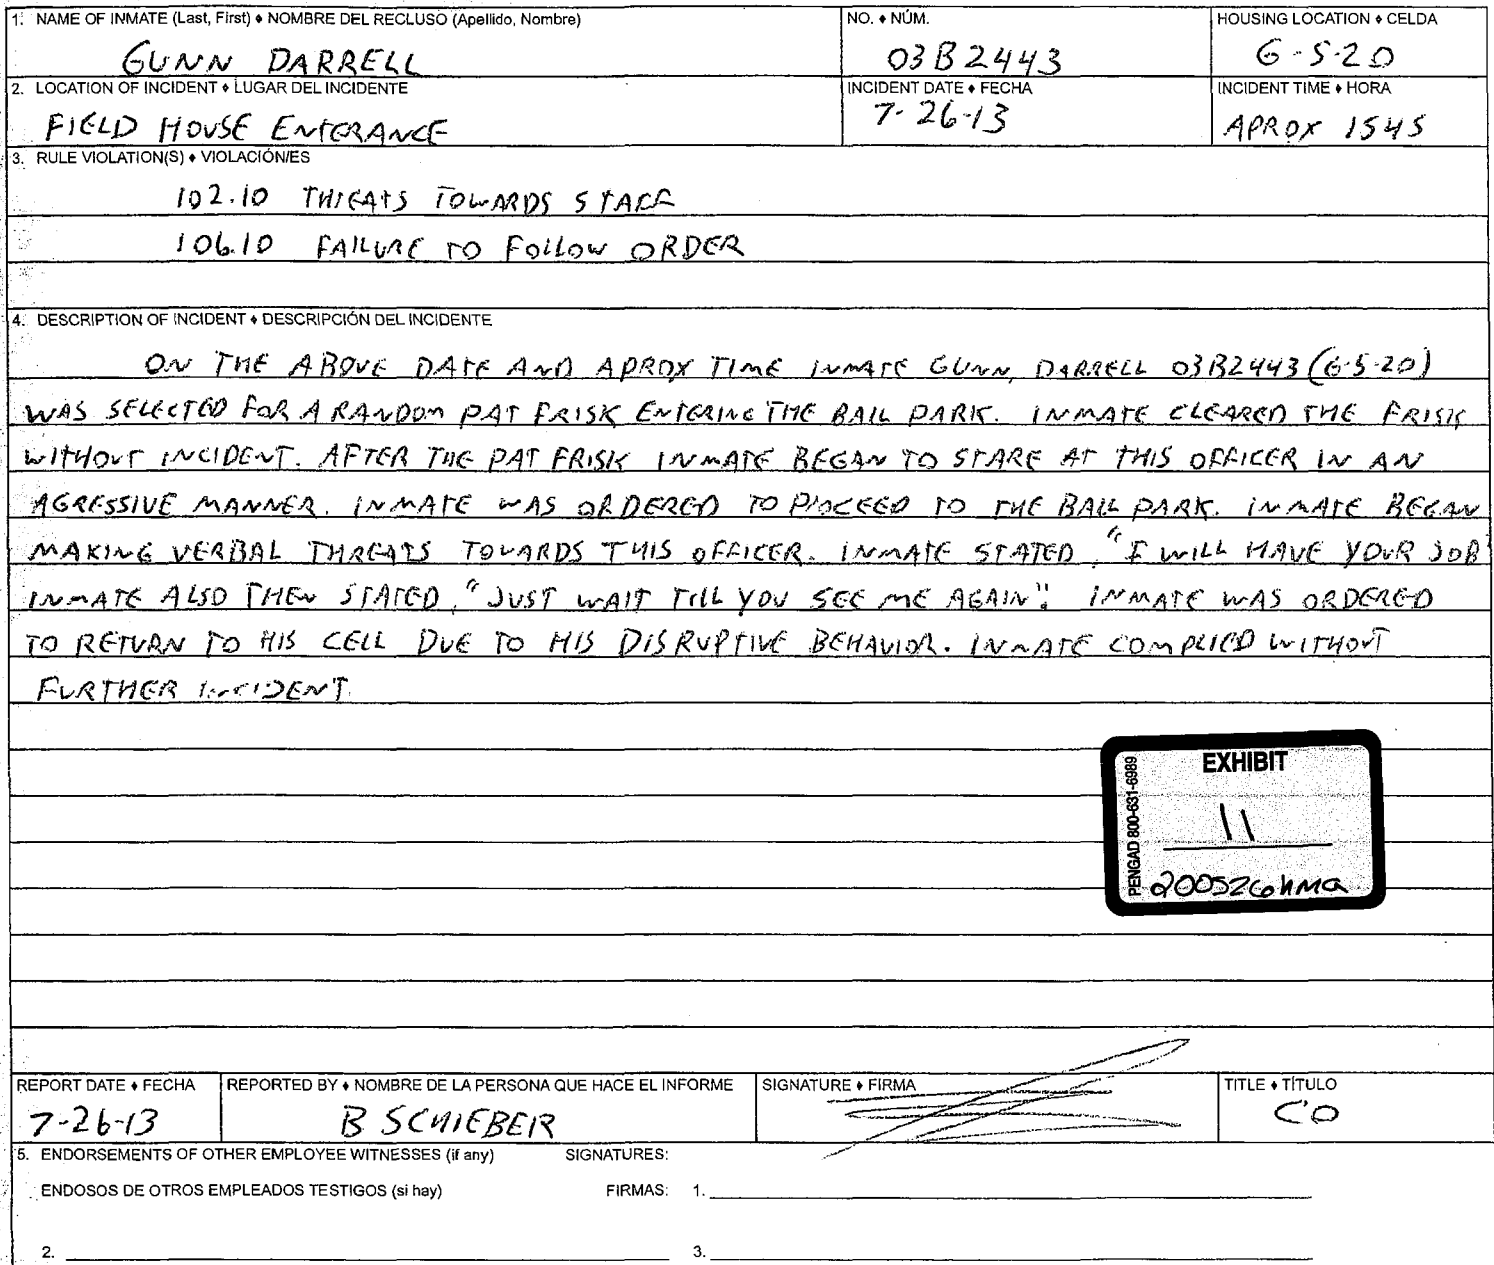 1. NAME OF INMATE (Last, First) ♦ NOMBRE DEL RECLUSO (Apellido, Nombre)
NO. ♦ NÚM.
HOUSING LOCATION ♦ CELDA
GUNN DARRELL
03B2443
G-5-20
2. LOCATION OF INCIDENT ♦ LUGAR DEL INCIDENTE
INCIDENT DATE ♦ FECHA
INCIDENT TIME ♦ HORA
FIELD HOUSE ENTERANCE
7-26-13
APROX 1545
3. RULE VIOLATION(S) ♦ VIOLACIÓN/ES
102.10 THREATS TOWARDS STAFF
106.10 FAILURE TO FOLLOW ORDER
4. DESCRIPTION OF INCIDENT ♦ DESCRIPCIÓN DEL INCIDENTE
ON THE ABOVE DATE AND APROX TIME INMATE GUNN, DARRELL 03B2443 (G-5-20)
WAS SELECTED FOR A RANDOM PAT FRISK ENTERING THE BALL PARK. INMATE CLEARED THE FRISK
WITHOUT INCIDENT. AFTER THE PAT FRISK INMATE BEGAN TO STARE AT THIS OFFICER IN AN
AGRESSIVE MANNER. INMATE WAS ORDERED TO PROCEED TO THE BALL PARK. INMATE BEGAN
MAKING VERBAL THREATS TOWARDS THIS OFFICER. INMATE STATED, "I WILL HAVE YOUR JOB"
INMATE ALSO THEN STATED, "JUST WAIT TILL YOU SEE ME AGAIN". INMATE WAS ORDERED
TO RETURN TO HIS CELL DUE TO HIS DISRUPTIVE BEHAVIOR. INMATE COMPLIED WITHOUT
FURTHER INCIDENT.
EXHIBIT
11
PENGAD 800-631-6989
REPORT DATE ♦ FECHA
REPORTED BY ♦ NOMBRE DE LA PERSONA QUE HACE EL INFORME
SIGNATURE ♦ FIRMA
TITLE ♦ TÍTULO
7-26-13
B SCHIEBER
CO
5. ENDORSEMENTS OF OTHER EMPLOYEE WITNESSES (if any) SIGNATURES:
ENDOSOS DE OTROS EMPLEADOS TESTIGOS (si hay) FIRMAS: 1.
2. 3.